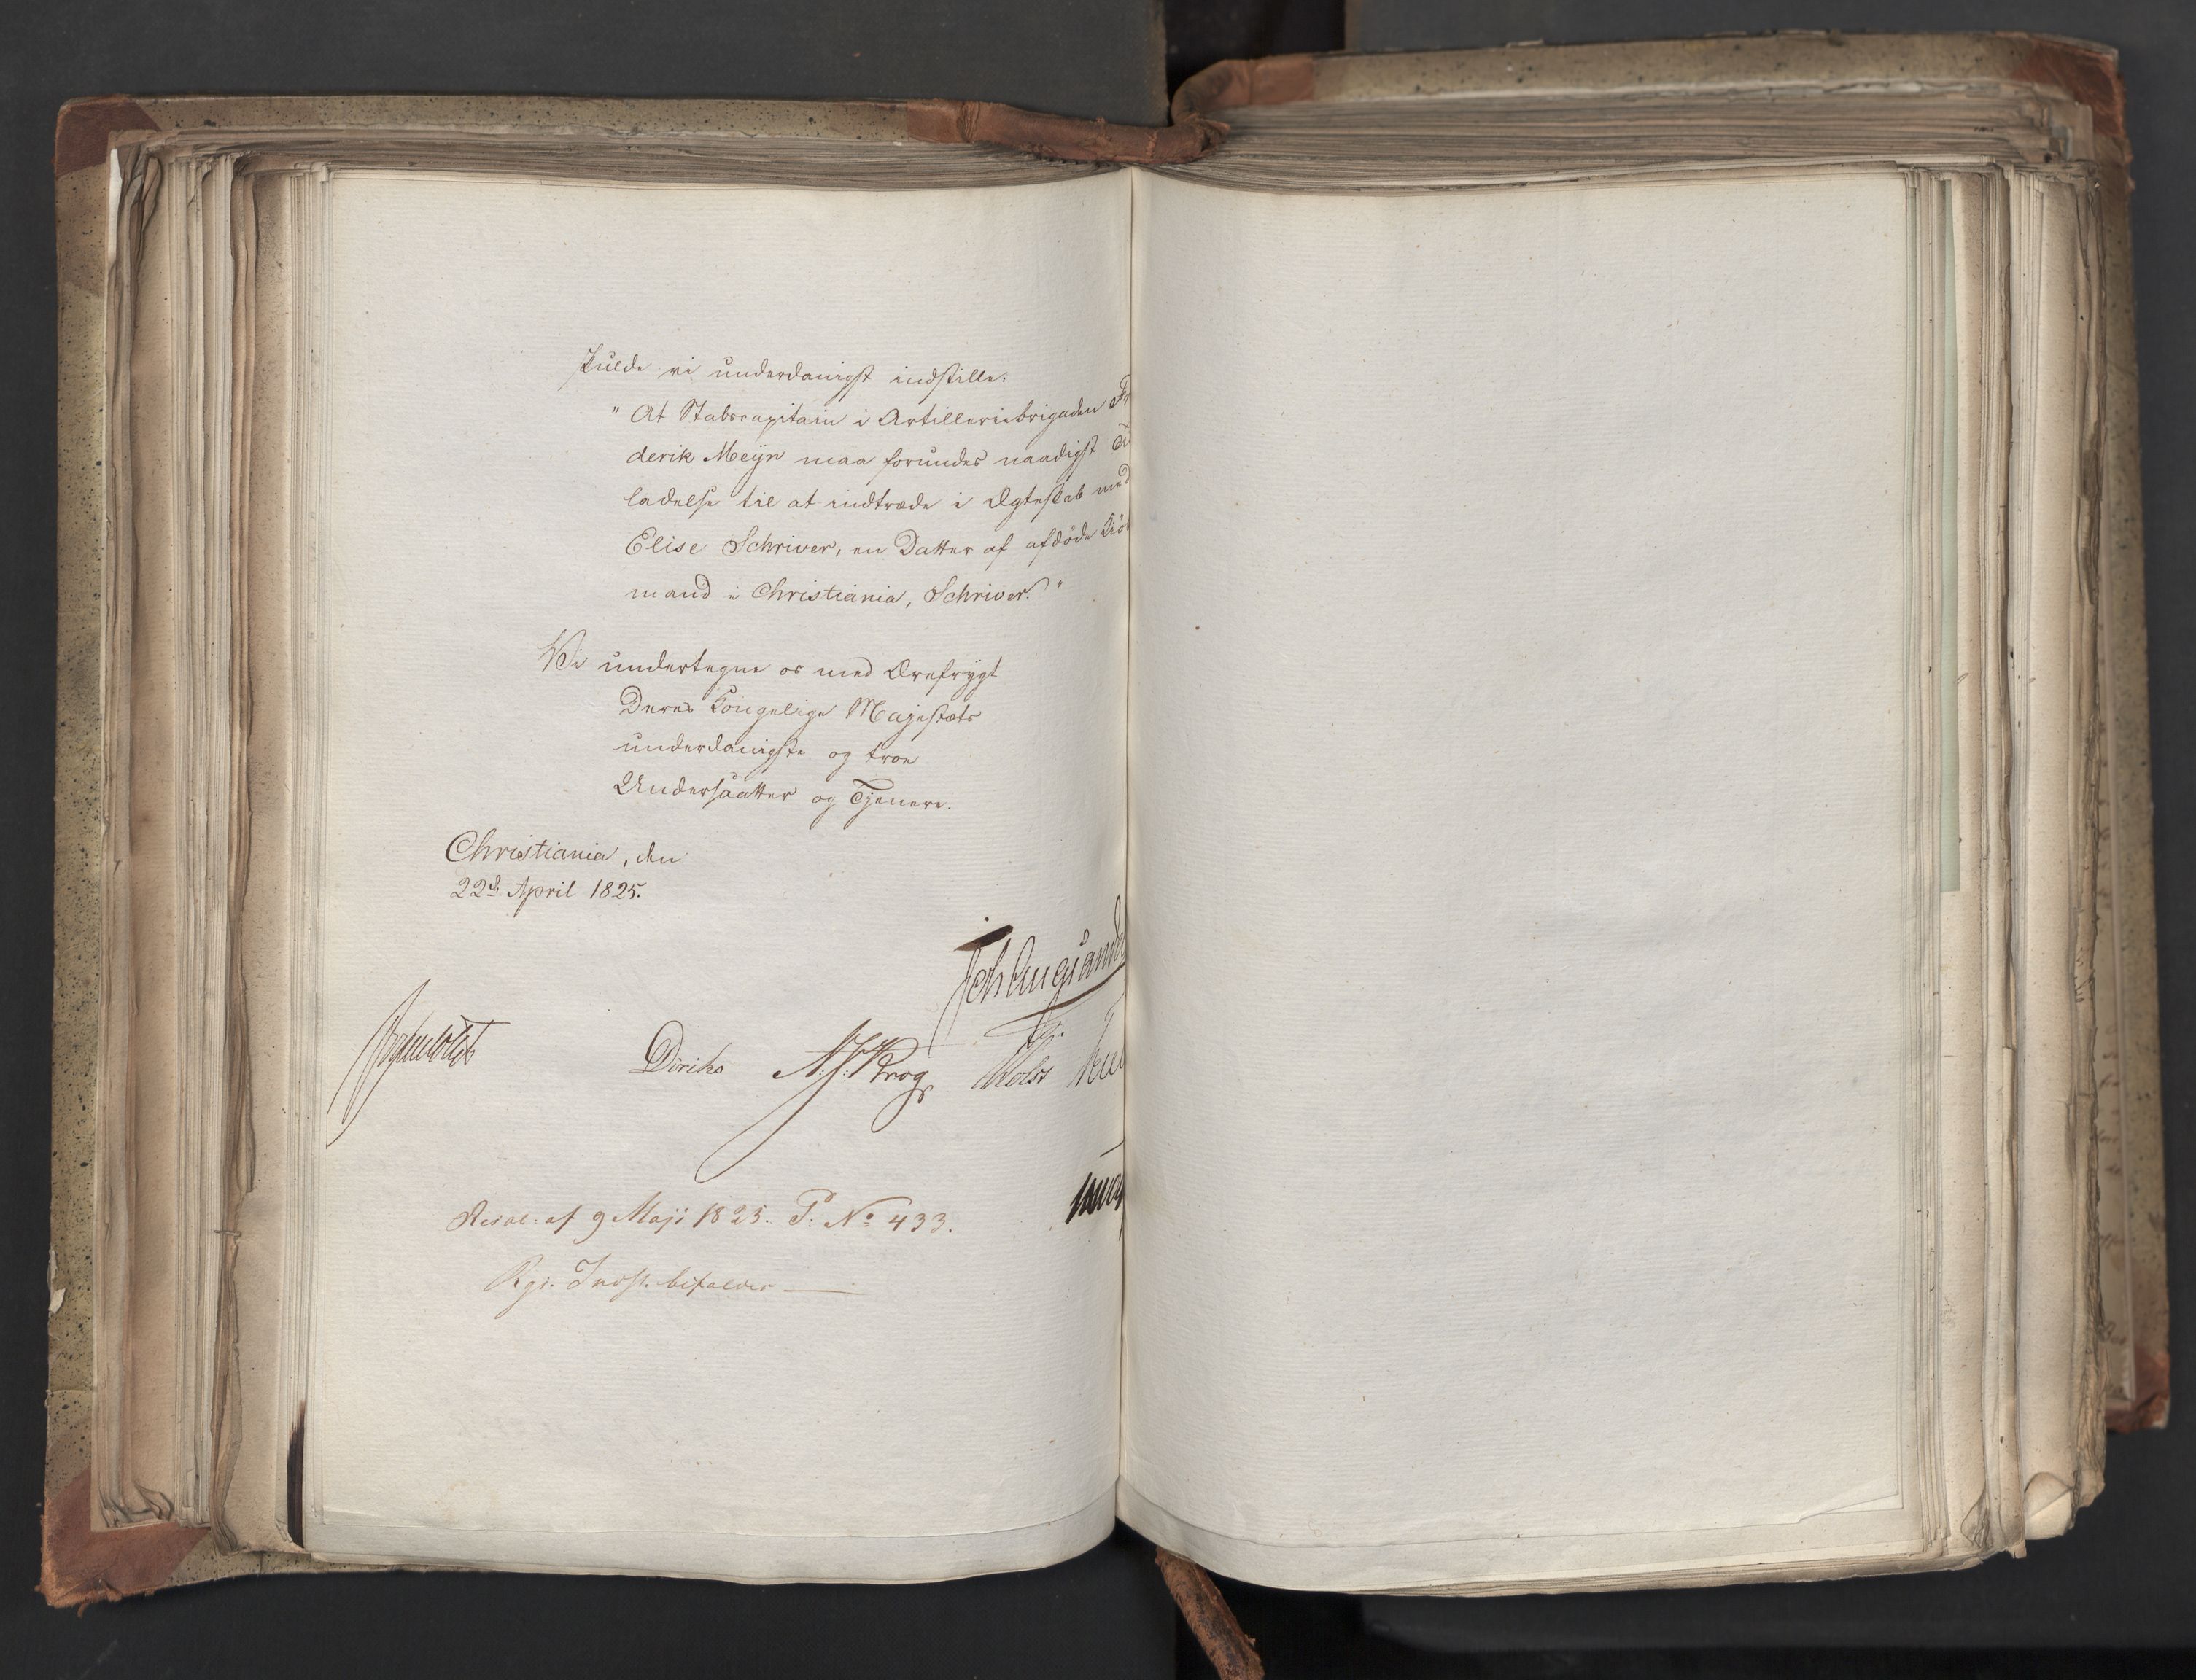 skulde vi underdanigst indstille:
"At Stabscapitain i Artilleriebrigaden Fr
derik Meÿn maa forundes naadigst Til
ladelse til at indtræde i Ægteskab med
Elise Schriver, en Datter af afdöde Kiö
mand i Christiania, Schriver."
Vi undertegne os med Ærefrygt
Deres Kongelige Majestæts
underdanigste og troe
Undersaatter og Tjenere.
Christiania, den
22d April 1825.
Diriks N. J. Krog Holst
Resol: af 9 Maji 1825. P: No 433.
Rgs. Indst. bifaldes